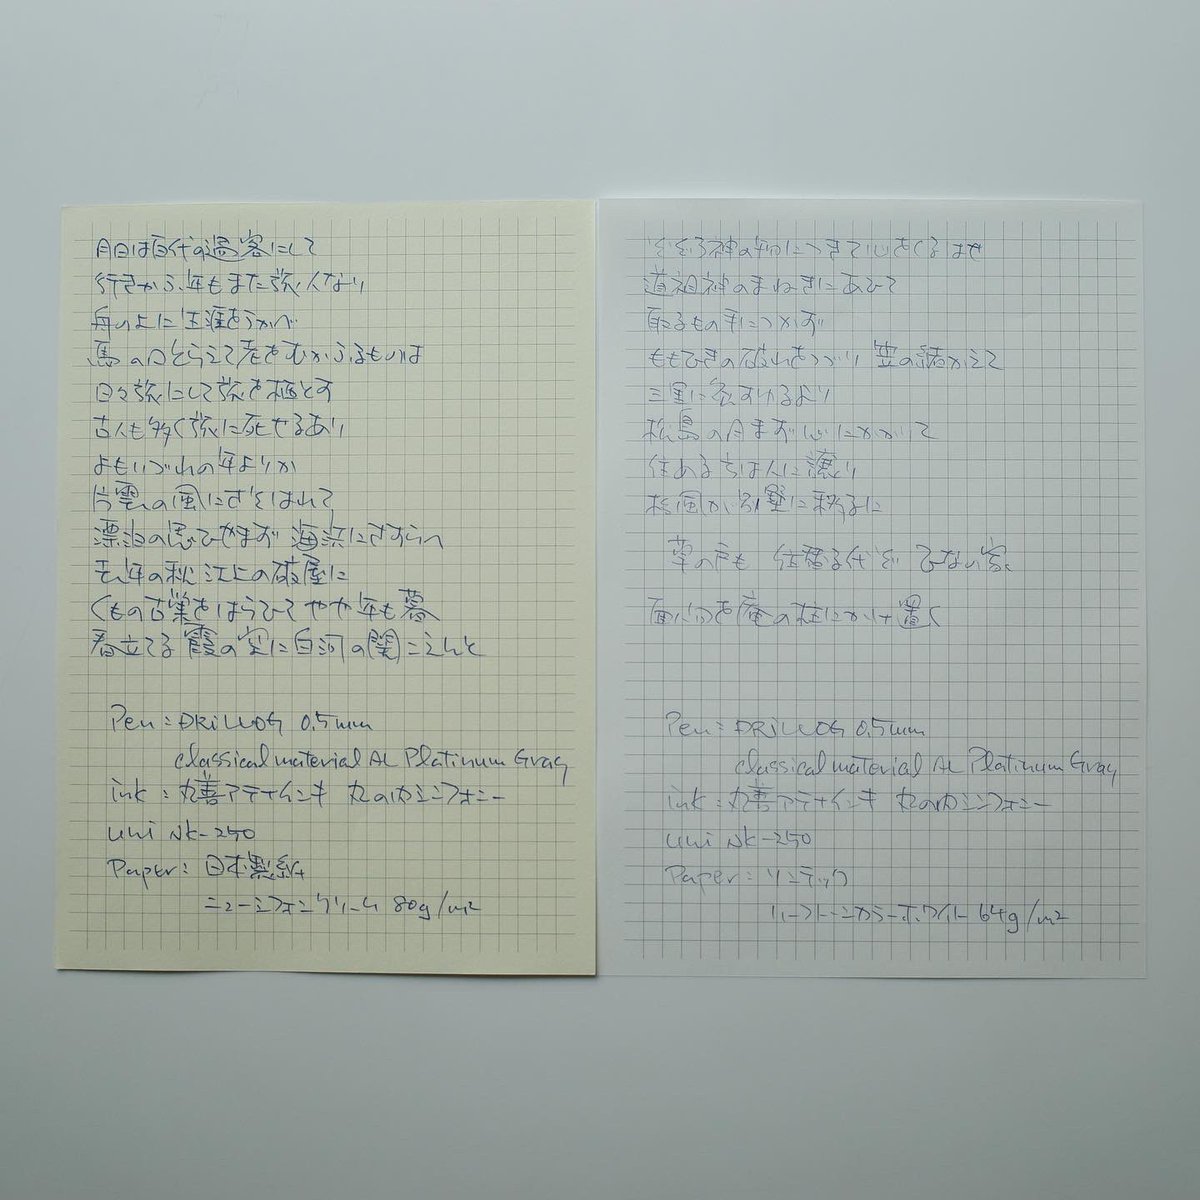 月日は百代の過客にして
行きかふ年もまた旅人なり
舟のよに生涯をうかべ
馬の口とらえて老をむかふるものは
日々旅にして旅を栖とす
古人も多く旅に死せるあり
よもいづれの年よりか
片雲の風にさそはれて
漂泊の思ひやまず 海浜にさすらへ
去年の秋江上の破屋に
くもの古巣をはらひてやや年も暮
春立てる霞の空に白河の関こえんと
Pen: DRILLOG 0.5mm
classical material AL Platinum Gray
ink: 丸善アテナインキ 丸の内シンフォニー
uni NK-250
Paper: 日本製紙
ニューシフォンクリーム 80g/m2
そぞろ神の物につきて心をくるはせ
道祖神のまねきにあひて
取るもの手につかず
ももひきの破れをつづり 笠の緒かえて
三里に灸すゆるより
松島の月まず心にかかりて
住める方は人に譲り
杉風が別墅に移るに
草の戸も 住替る代ぞ ひなの家
面八句を庵の柱にかけ置く
Pen: DRILLOG 0.5mm
classical material AL Platinum Gray
ink: 丸善アテナインキ 丸の内シンフォニー
uni NK-250
Paper: リンテック
ホワイト 64g/m2